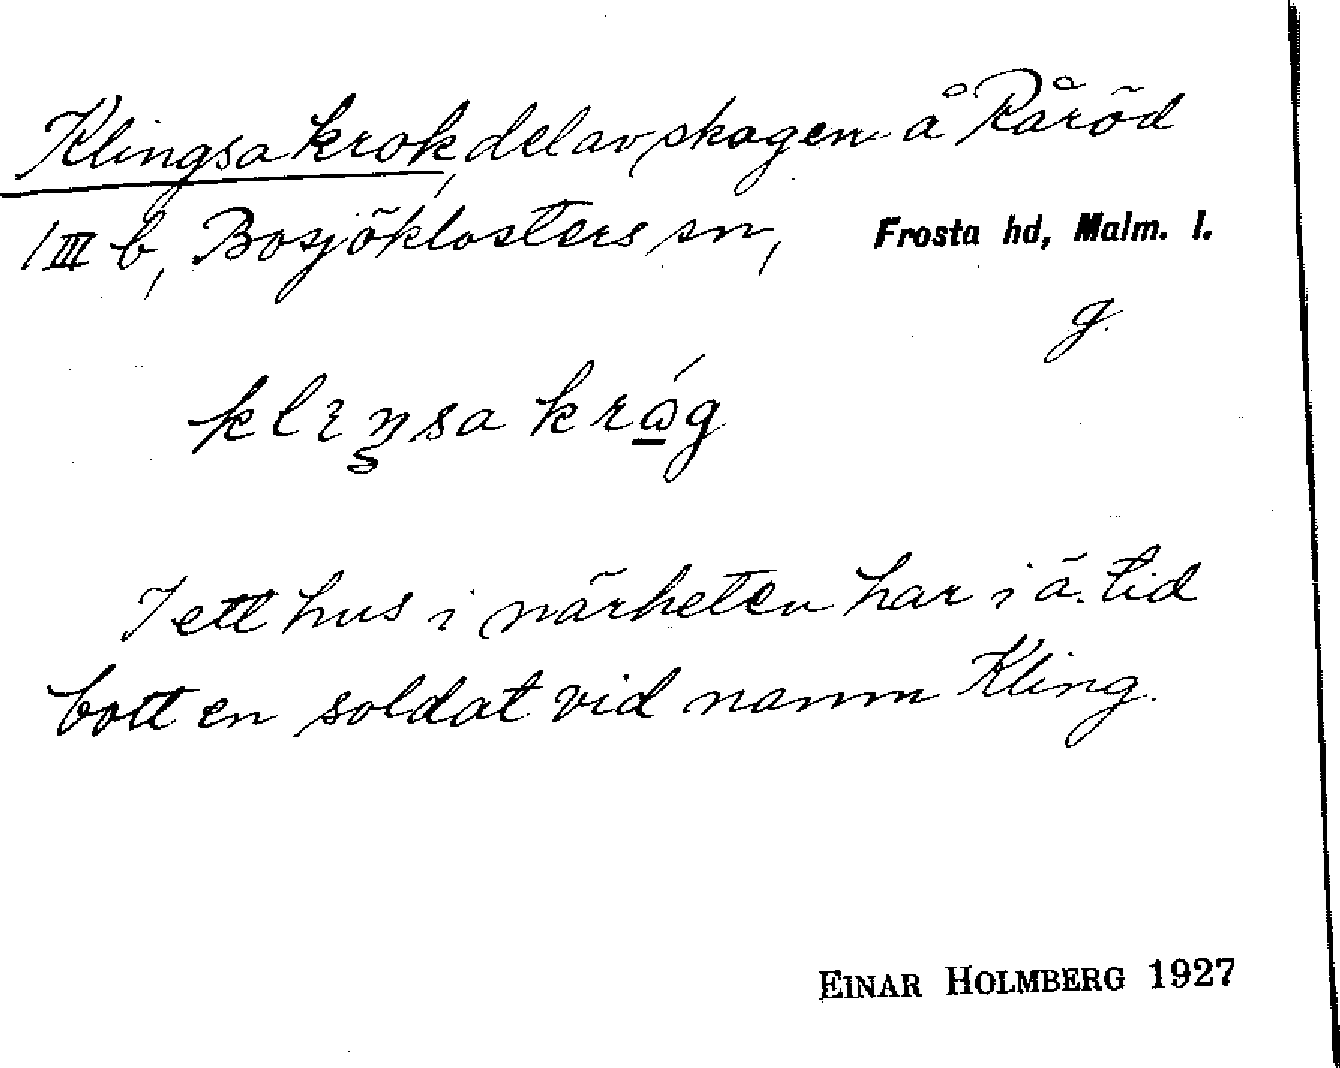 Klingsa krok, del av skogen å Råröd
1 III b, Bosjöklosters sn, Frosta hd, Malm. l.
g.
I ett hus i närheten har i ä. tid
bott en soldat vid namn Kling.
EINAR HOLMBERG 1927